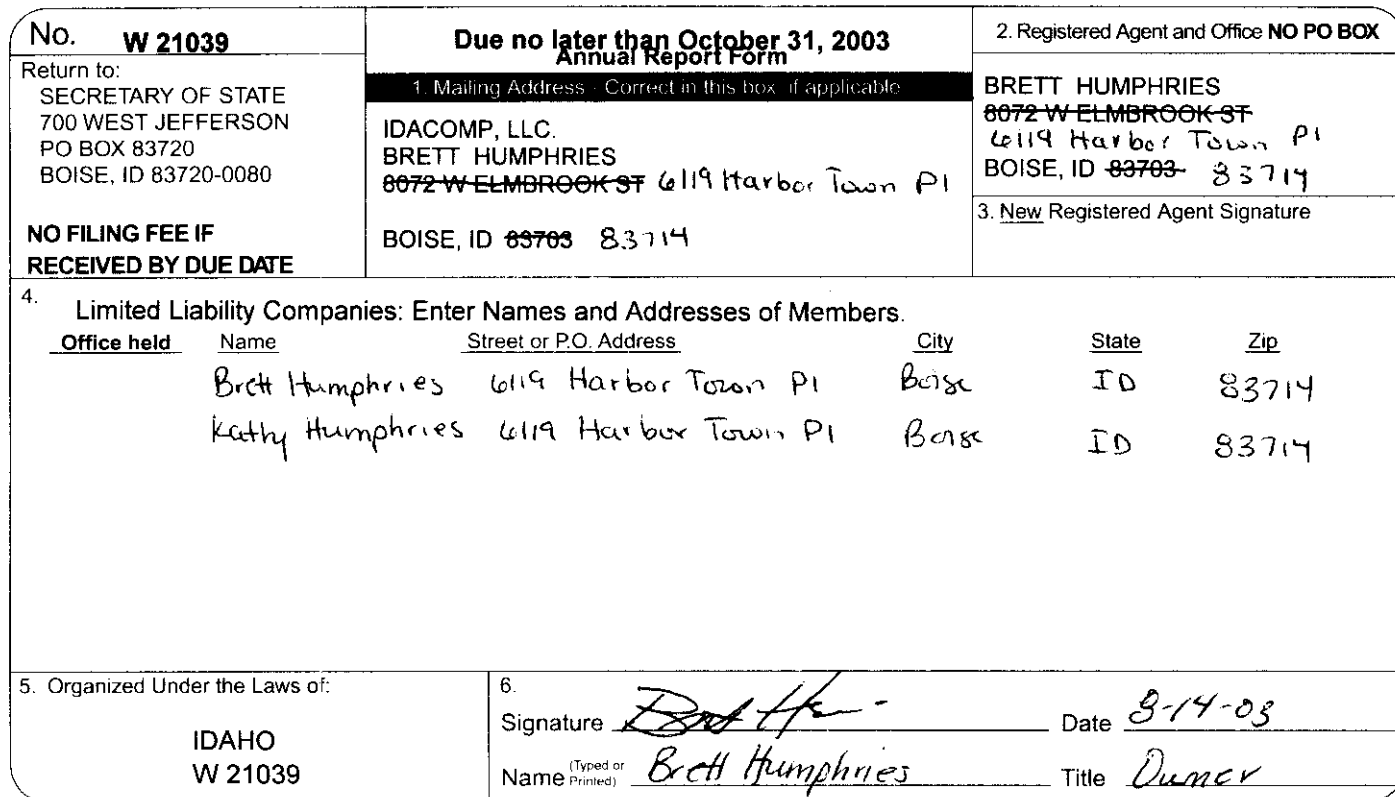 No. W 21039
Return to:
SECRETARY OF STATE
700 WEST JEFFERSON
PO BOX 83720
BOISE, ID 83720-0080
NO FILING FEE IF
RECEIVED BY DUE DATE
Due no later than October 31, 2003
Annual Report Form
1. Mailing Address - Correct in this box if applicable
IDACOMP, LLC.
BRETT HUMPHRIES
8072 W ELMBROOK ST 6119 Harbor Town Pl
BOISE, ID 83703 83714
2. Registered Agent and Office NO PO BOX
BRETT HUMPHRIES
8072 W ELMBROOK ST
6119 Harbor Town Pl
BOISE, ID 83703 83714
3. New Registered Agent Signature
4. Limited Liability Companies: Enter Names and Addresses of Members.
Office held Name Street or P.O. Address City State Zip
Brett Humphries 6119 Harbor Town Pl Boise ID 83714
Kathy Humphries 6119 Harbor Town Pl Boise ID 83714
5. Organized Under the Laws of:
IDAHO
W 21039
6.
Signature Date 8-14-03
Name (Typed or Printed) Brett Humphries Title Owner